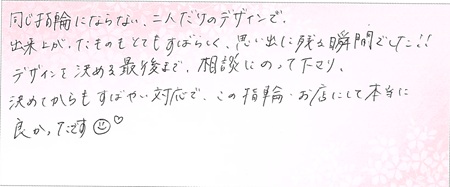 同じ指輪にならない、二人だけのデザインで、
出来上がったものもとてもすばらしく、思い出に残る瞬間でした!!
デザインを決める最後まで、相談にのって下さり、
決めてからもすばやい対応で、この指輪・お店にして本当に
良かったです☺♡